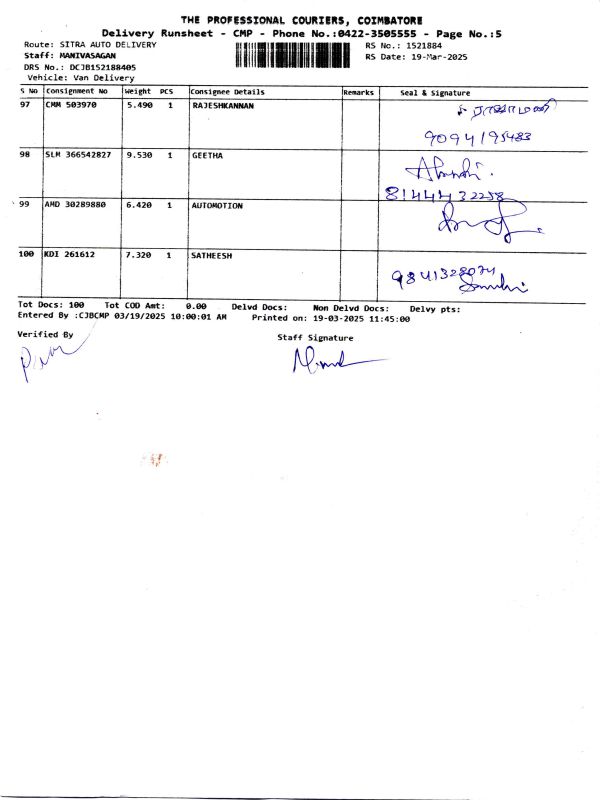 THE PROFESSIONAL COURIERS, COIMBATORE
Delivery Runsheet - CMP - Phone No.:0422-3505555 - Page No.:5
Route: SITRA AUTO DELIVERY RS No.: 1521884
Staff: MANIVASAGAN RS Date: 19-Mar-2025
DRS No.: DCJB152188405
Vehicle: Van Delivery
S No Consignment No Weight PCS Consignee Details Remarks Seal & Signature
97 CMM 503970 5.490 1 RAJESHKANNAN
9094195483
98 SLM 366542827 9.530 1 GEETHA
8144432258
99 AMD 30289880 6.420 1 AUTOMOTION
100 KDI 261612 7.320 1 SATHEESH
9841328074
Tot Docs: 100 Tot COD Amt: 0.00 Delvd Docs: Non Delvd Docs: Delvy pts:
Entered By :CJBCMP 03/19/2025 10:00:01 AM Printed on: 19-03-2025 11:45:00
Verified By
Staff Signature